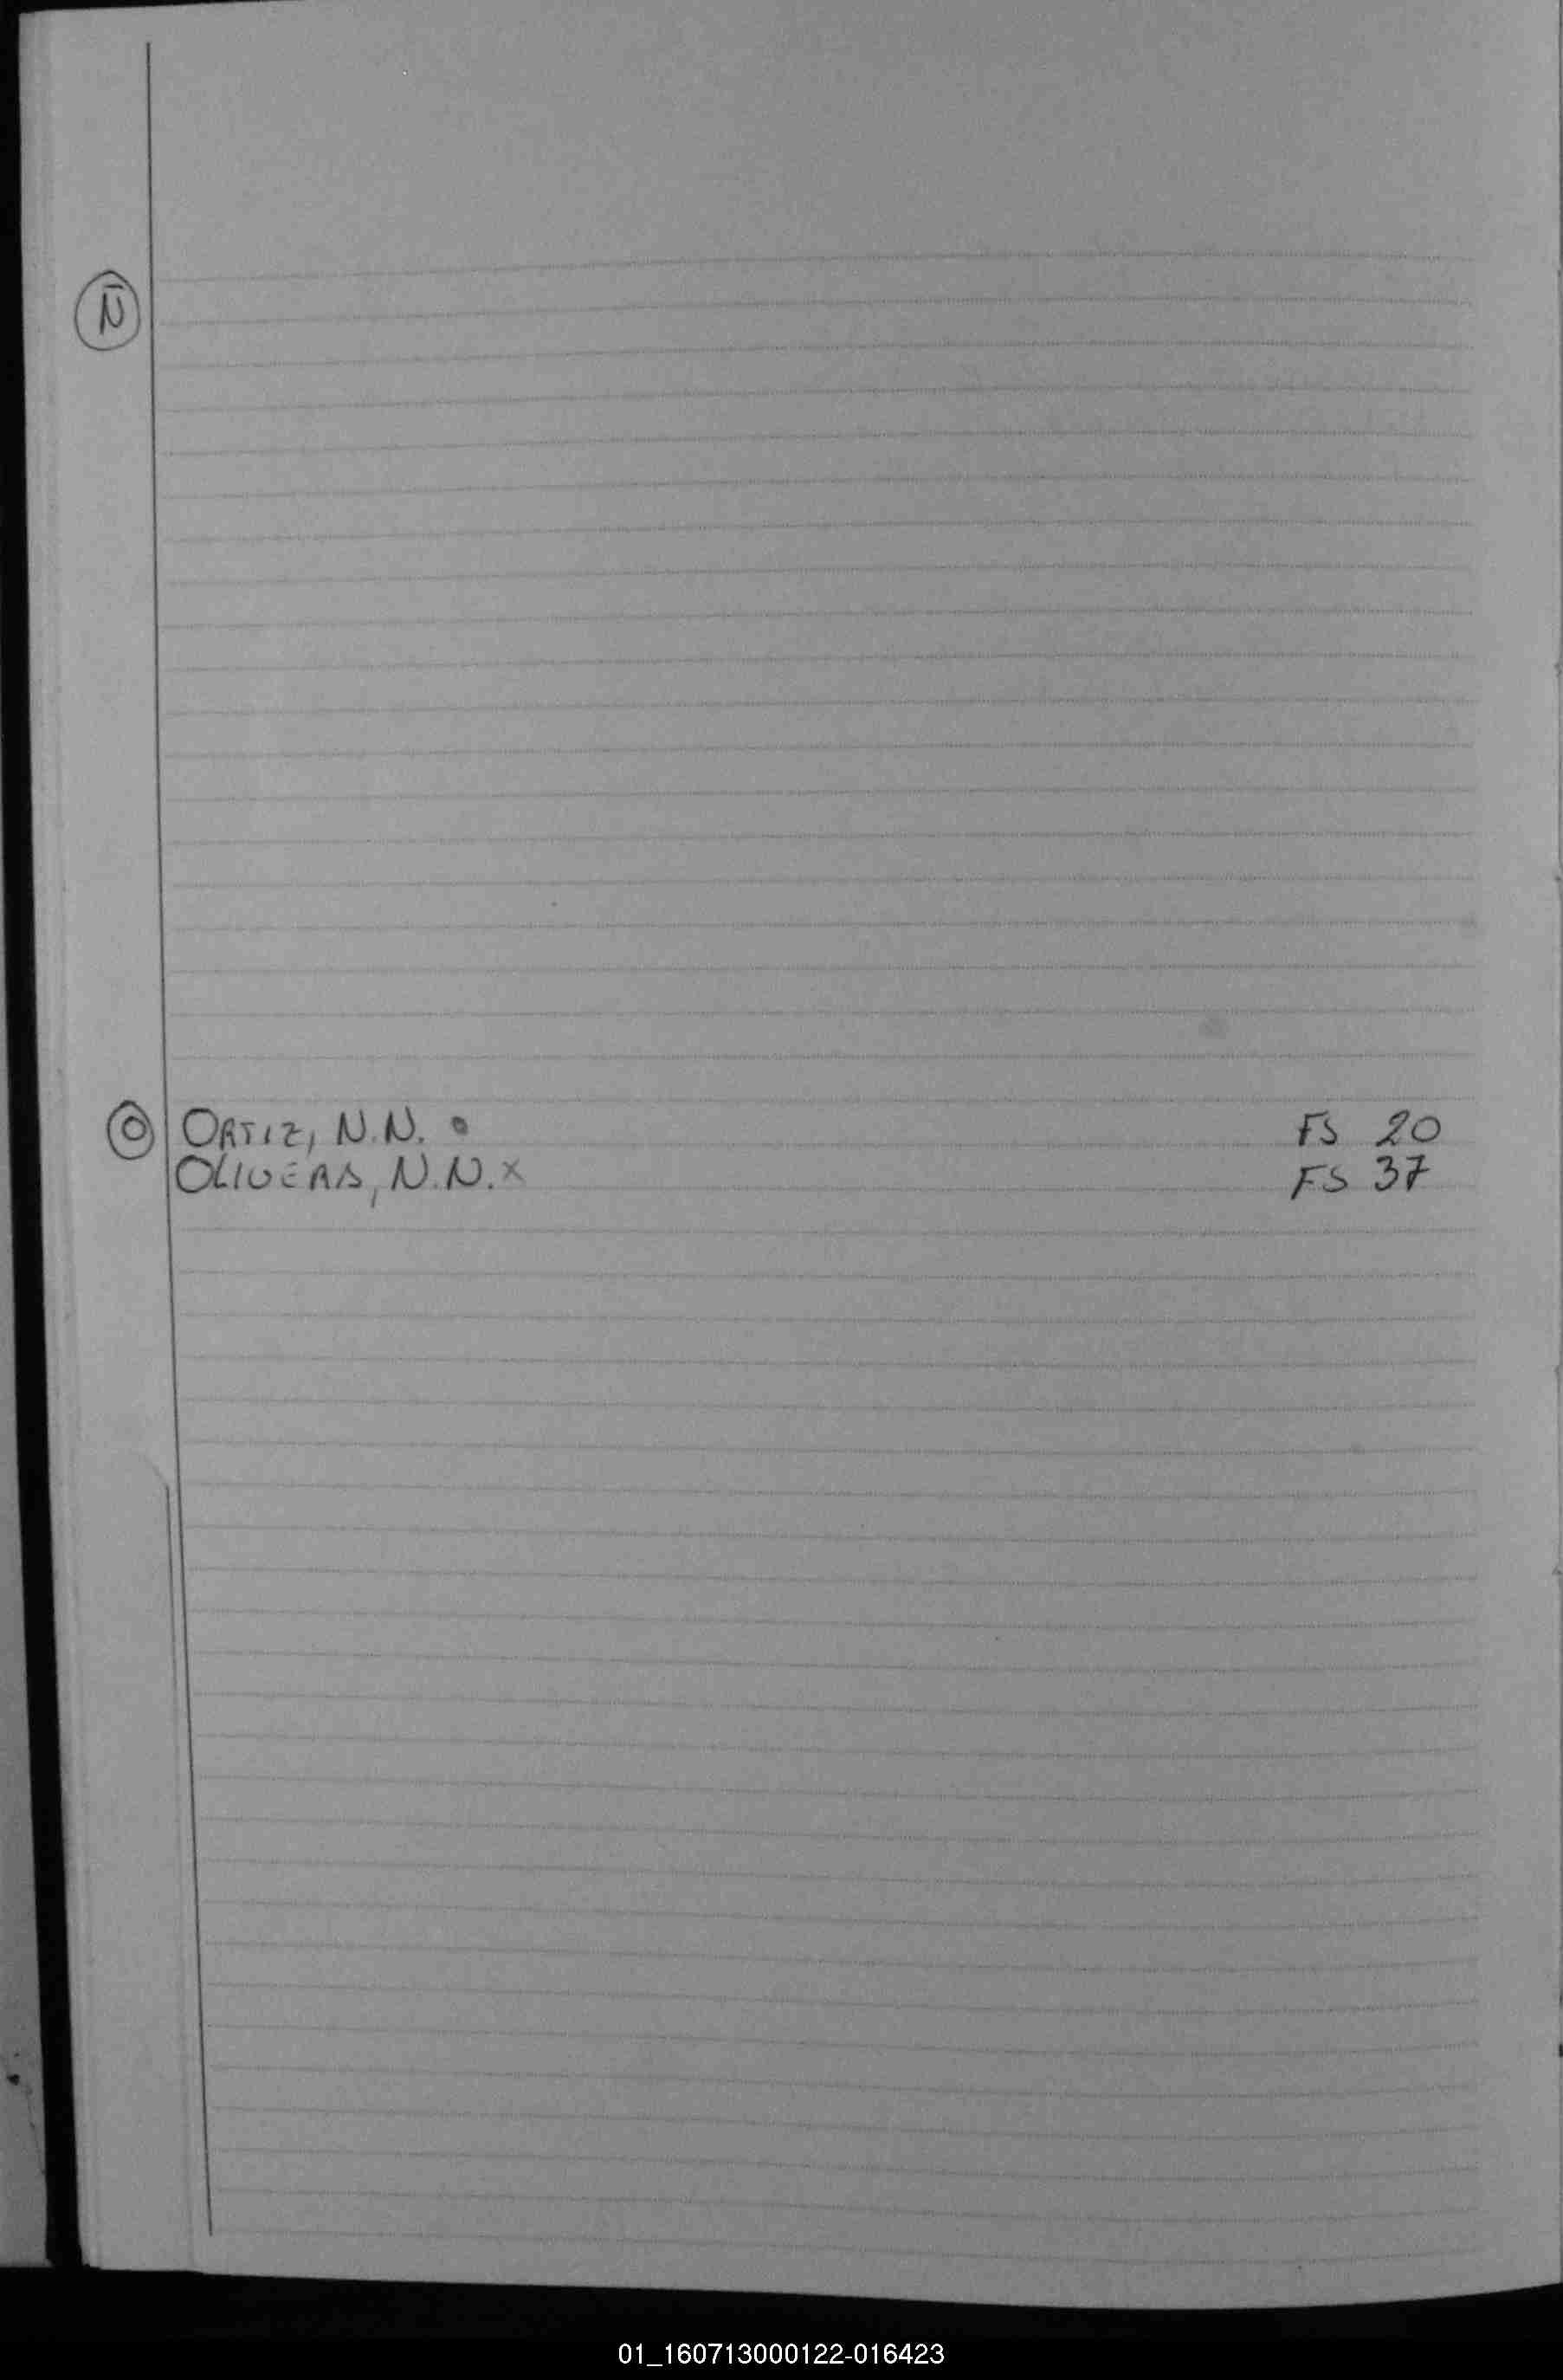 Ñ
O ORTIZ, N.N. FS 20
OLIVERA, N.N. x FS 37
01_160713000122-016423